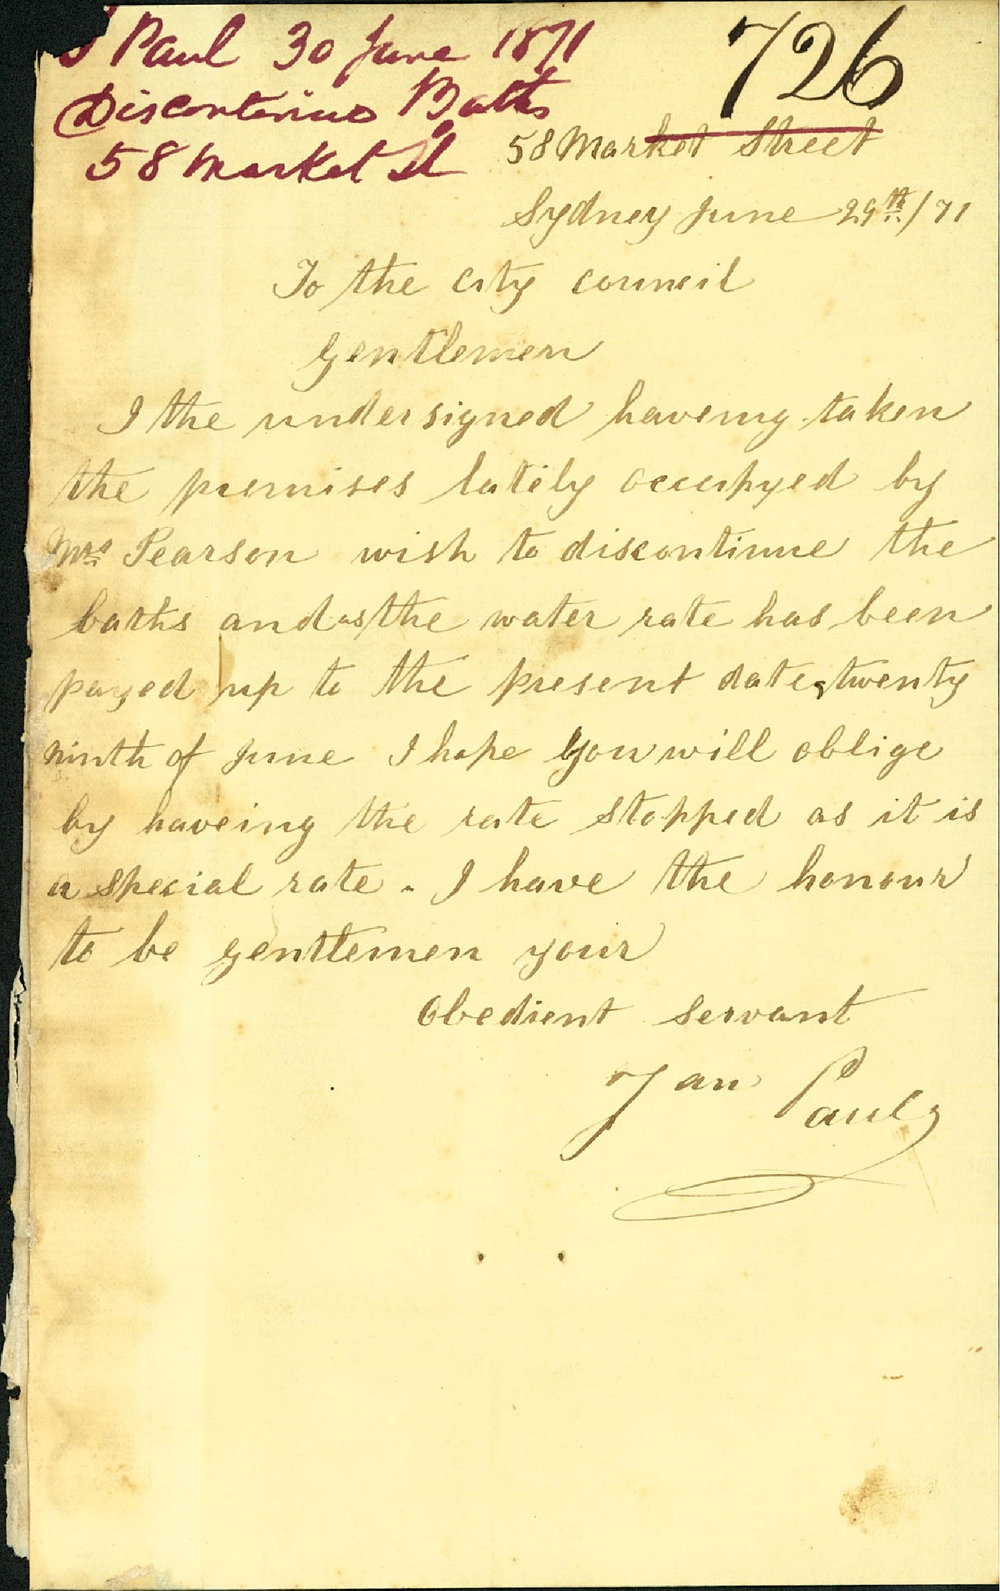 J Paul 30 June 1871
Discontinue Baths
58 Market St
726
58 Market Street
Sydney June 29th/71
To the city council
Gentlemen
I the undersigned haveing taken
the premises latily occupyed by
Mrs Pearson wish to discontinue the
baths and as the water rate has been
payed up to the present date, twenty
ninth of June I hope you will oblige
by haveing the rate stopped as it is
a special rate. I have the honour
to be gentlemen your
obedient servant
Jan Paul